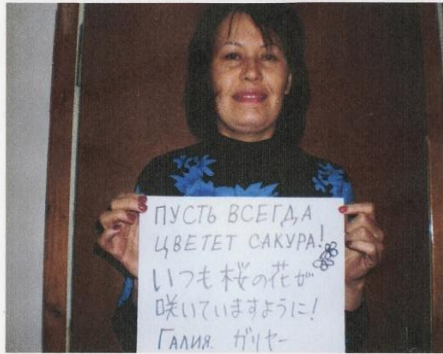 ПУСТЬ ВСЕГДА
ЦВЕТЕТ САКУРА!
いつも桜の花が
咲いていますように!
ГАЛИЯ. ガリヤー